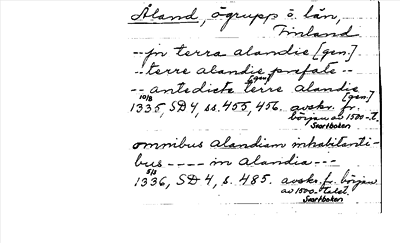 Åland, ögrupp ö. län,
Finland
-- in terra alandie [gen.]
-- terre alandie prefate --
[gen.]
-- antedicte terre alandie
[gen.]
10/8
1335, SD 4, ss. 455, 456. avskr. fr.
början av 1500-t.
Svartboken
omnibus alandiam inhabitanti-
bus ---- in alandia ---
5/3
1336, SD 4, s. 485. avskr. fr. början
av 1500-talet.
Svartboken